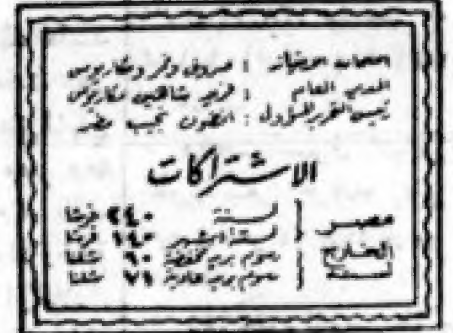 أصحاب الامتياز : صروف ونمر ومكاريوس
المدير العام : فريد شاهين مكاريوس
رئيس التحرير المسؤول : انطون نجيب مطر
الاشتراكات
مصر { لسنة ٢٤٠ قرشا
لستة اشهر ١٤٠ قرشا
الخارج لسنة { رسوم بريد مخفضة ٩٠ شلنا
رسوم بريد عادية ٧١ شلنا